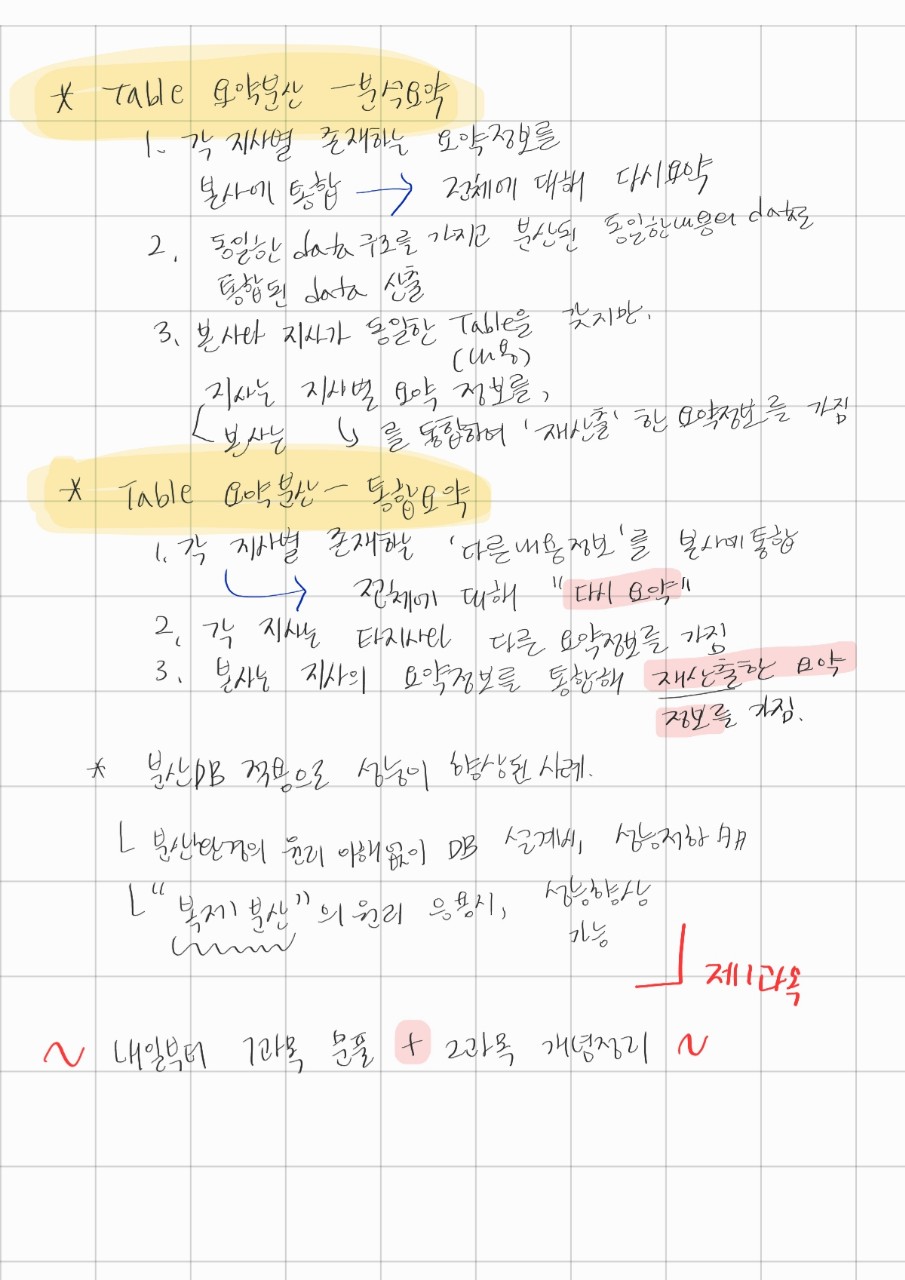 * Table 요약분산 - 분석요약
1. 각 지사별 존재하는 요약정보를
본사에 통합 → 전체에 대해 다시요약
2. 동일한 data 구조를 가지고 분산된 동일한내용의 data로
통합된 data 산출
3. 본사와 지사가 동일한 Table을 갖지만.
(내용)
지사는 지사별 요약 정보를,
본사는 ↳ 를 통합하여 '재산출' 한 요약정보를 가짐
* Table 요약분산 - 통합요약
1. 각 지사별 존재하는 '다른내용정보'를 본사에통합
→ 전체에 대해 "다시 요약"
2. 각 지사는 타지사와 다른 요약정보를 가짐
3. 본사는 지사의 요약정보를 통합해 재산출한 요약
정보를 가짐.
* 분산DB 적용으로 성능이 향상된 사례.
└ 분산환경의 원리 이해없이 DB 설계시, 성능저하
└ "복제분산"의 원리 응용시, 성능향상
가능
제1과목
~ 내일부터 1과목 문풀 + 2과목 개념정리 ~